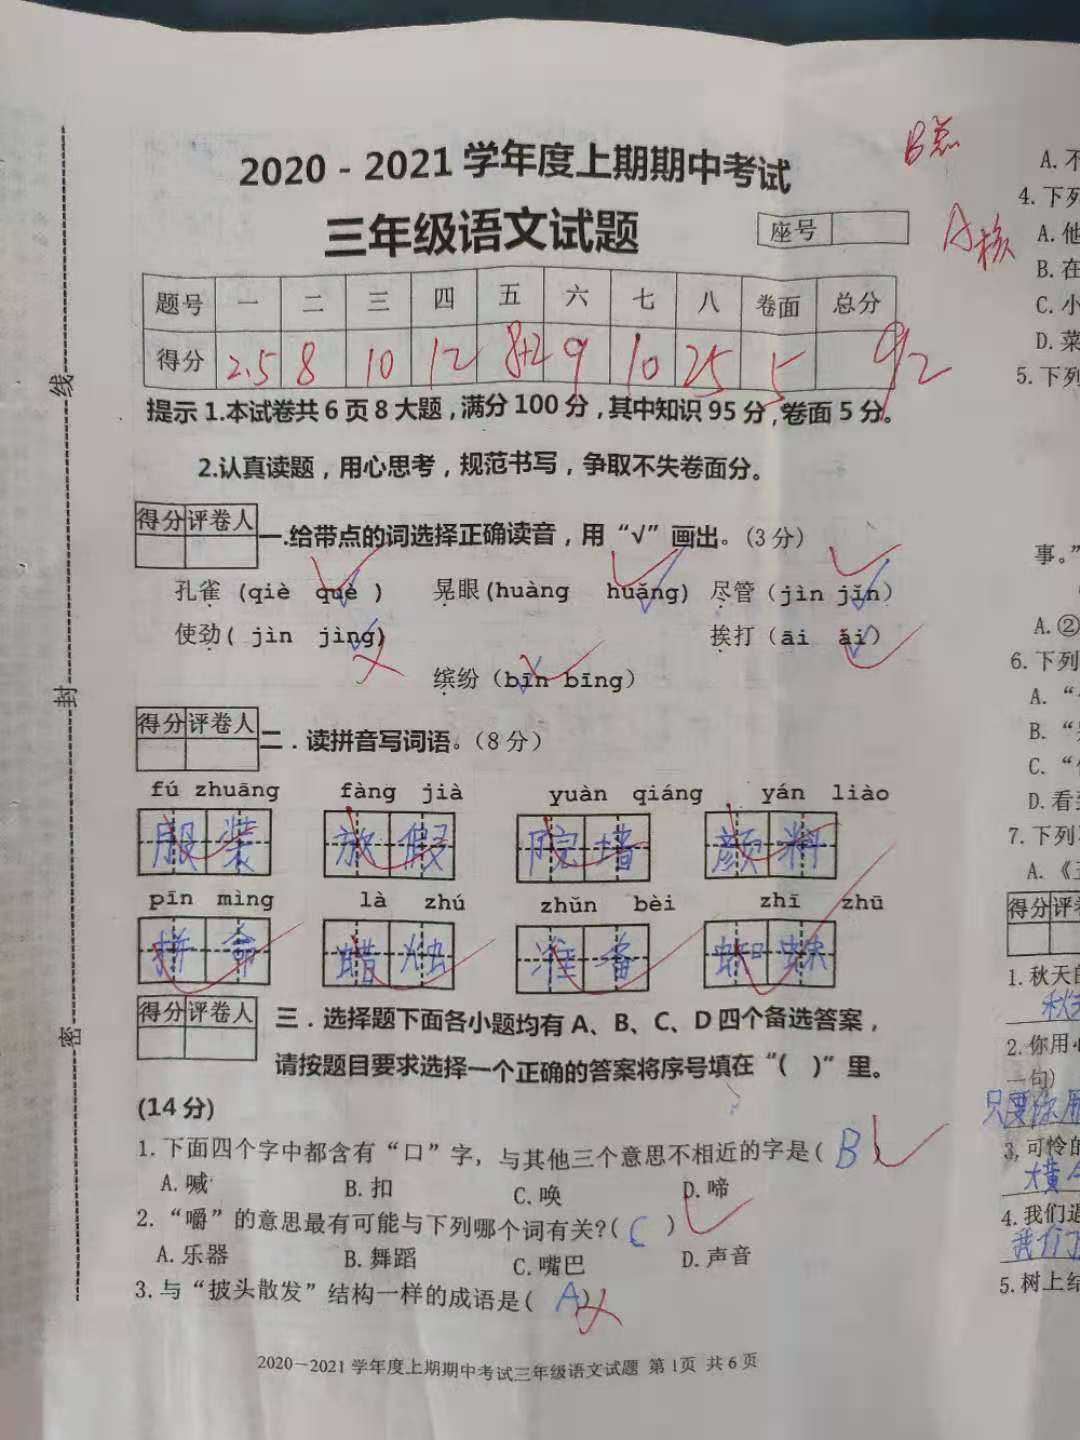 2020-2021学年度上期期中考试
B总
三年级语文试题
座号
A核
题号 一 二 三 四 五 六 七 八 卷面 总分
得分 2.5 8 10 12 8+2 9 10 25 5 92
提示1.本试卷共6页8大题,满分100分,其中知识95分,卷面5分。
2.认真读题,用心思考,规范书写,争取不失卷面分。
得分 评卷人
一.给带点的词选择正确读音,用“√”画出。(3分)
孔雀 (qiè què ) 晃眼(huàng huǎng) 尽管(jìn jǐn)
使劲( jìn jìng) 挨打(āi ǎi)
缤纷(bīn bīng)
得分 评卷人
二.读拼音写词语。(8分)
fú zhuāng fàng jià yuàn qiáng yán liào
服装 放假 院墙 颜料
pīn mìng là zhú zhǔn bèi zhī zhū
拼命 蜡烛 准备 蜘蛛
得分 评卷人
三.选择题下面各小题均有A、B、C、D四个备选答案,
请按题目要求选择一个正确的答案将序号填在“( )”里。
(14分)
1.下面四个字中都含有“口”字,与其他三个意思不相近的字是( B )
A.喊 B.扣 C.唤 D.啼
2.“嚼”的意思最有可能与下列哪个词有关?( C )
A.乐器 B.舞蹈 C.嘴巴 D.声音
3.与“披头散发”结构一样的成语是( A )
2020-2021学年度上期期中考试三年级语文试题 第1页 共6页
A.不
4.下列
A.他
B.在
C.小
D.菜
5.下列
事。”
A.②
6.下列
A.“
B.“
C.“
D.看
7.下列
A.《
得分 评
1.秋天的
秋天
2.你用
一句)
只要你
3.可怜的
横
4.我们
我们
5.树上结
线
封
密